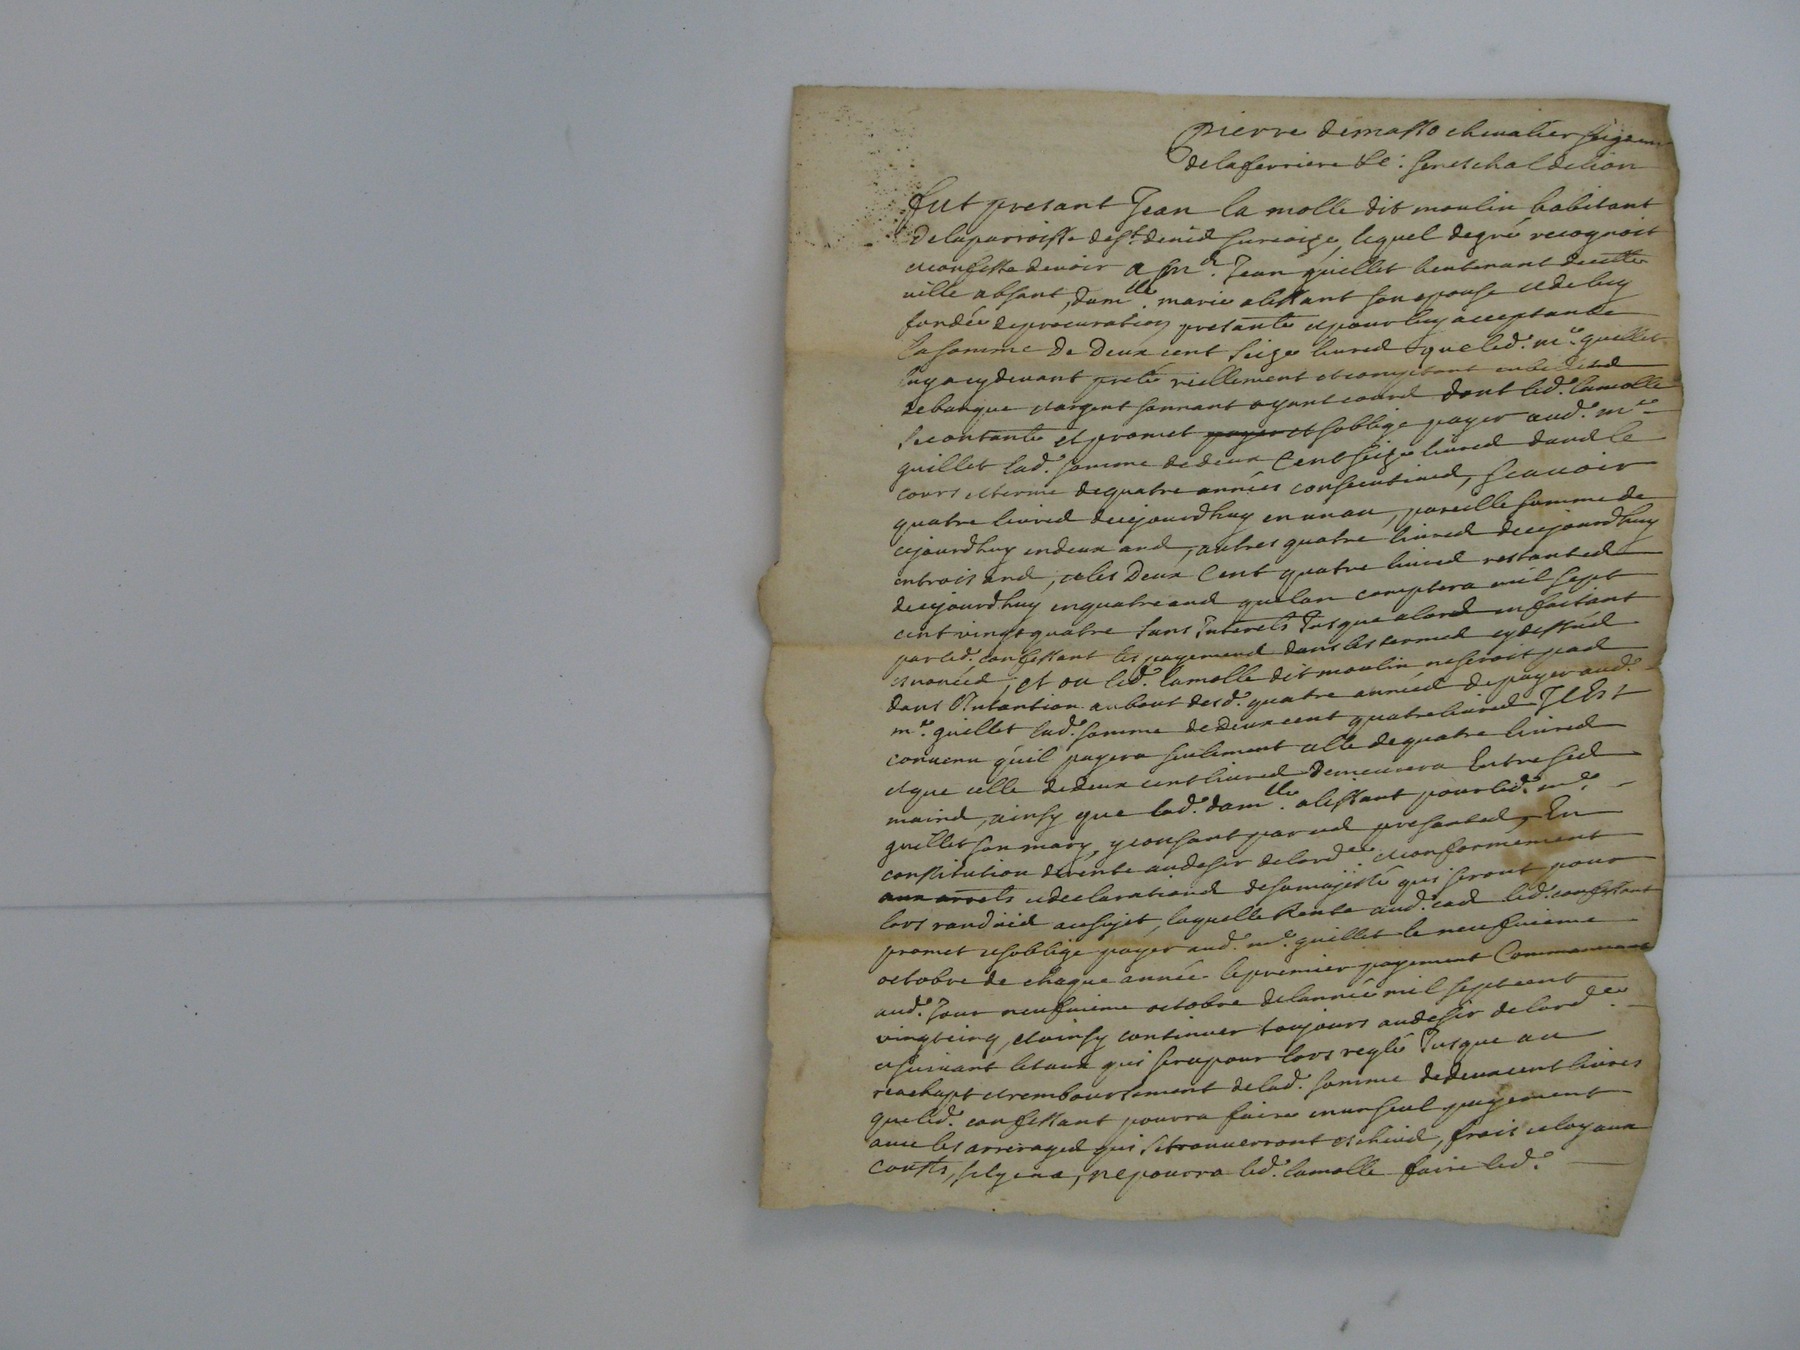 pierre demasso chevalier seigneur
de la ferriere &c: seneschal de lion
fut presant Jean la molle dit moulin habitant
de la parroisse de st. denis sur coize, lequel de gré recognoit
et confesse devoir a mr. Jean guillet lieutenant de cette
ville absant, damlle. marie alissant son epouse et de luy
fondée de procuration presante et pour luy acceptante
la somme de deux cent seize livres que led. me. guillet
luy a cy devant preté reellement et comptant en billets
de banque et argent sonnant ayant cours dont led. lamolle
se contante et promet payer et soblige payer aud. me
guillet lad. somme de deux cent seize livres dans le
cours et terme de quatre années consecutives, scavoir
quatre livres de cejourdhuy en un an, pareille somme de
cejourdhuy en deux ans, autres quatre livres de cejourdhuy
en trois ans, et les deux cent quatre livres restantes
de cejourdhuy en quatre ans que lon comptera mil sept
cent vingt quatre sans Interets Jusque alors en faisant
par led. confessant les payemens dans les termes cy dessus
enoncés, et ou led. lamolle dit moulin ne seroit pas
dans l'intantion au bout desd. quatre années de payer aud.
me. guillet lad. somme de deux cent quatre livres Il Est
convenu quil payera seulement celle de quatre livres
et que celle de deux cent livres demeurera Entre ses
mains, ainsy que lad. damlle. alissant pour led. me.
guillet son mary, y consant par ces presantes, En
constitution de rente au desir de lord.ce et conformement
aux arrets et declarations de sa majesté qui seront pour
lors randües au sujet, laquelle Rente aud. cas led. confessant
promet et soblige payer aud. me. guillet le neufvieme
octobre de chaque année le premier payement Commancant
aud. Jour neufvieme octobre de lannée mil sept cent
vingt cinq, et ainsy continuer toujours au desir de lord.ce
et suivant le taux qui sera pour lors reglé Jusque au
reachapt et remboursement de lad. somme de deux cent livres
que led. confessant pourra faire en un seul payement
avec les arrerages qui se trouverront eschus, frais et loyaux
cousts, sil y en a, ne pourra led. lamolle faire led.